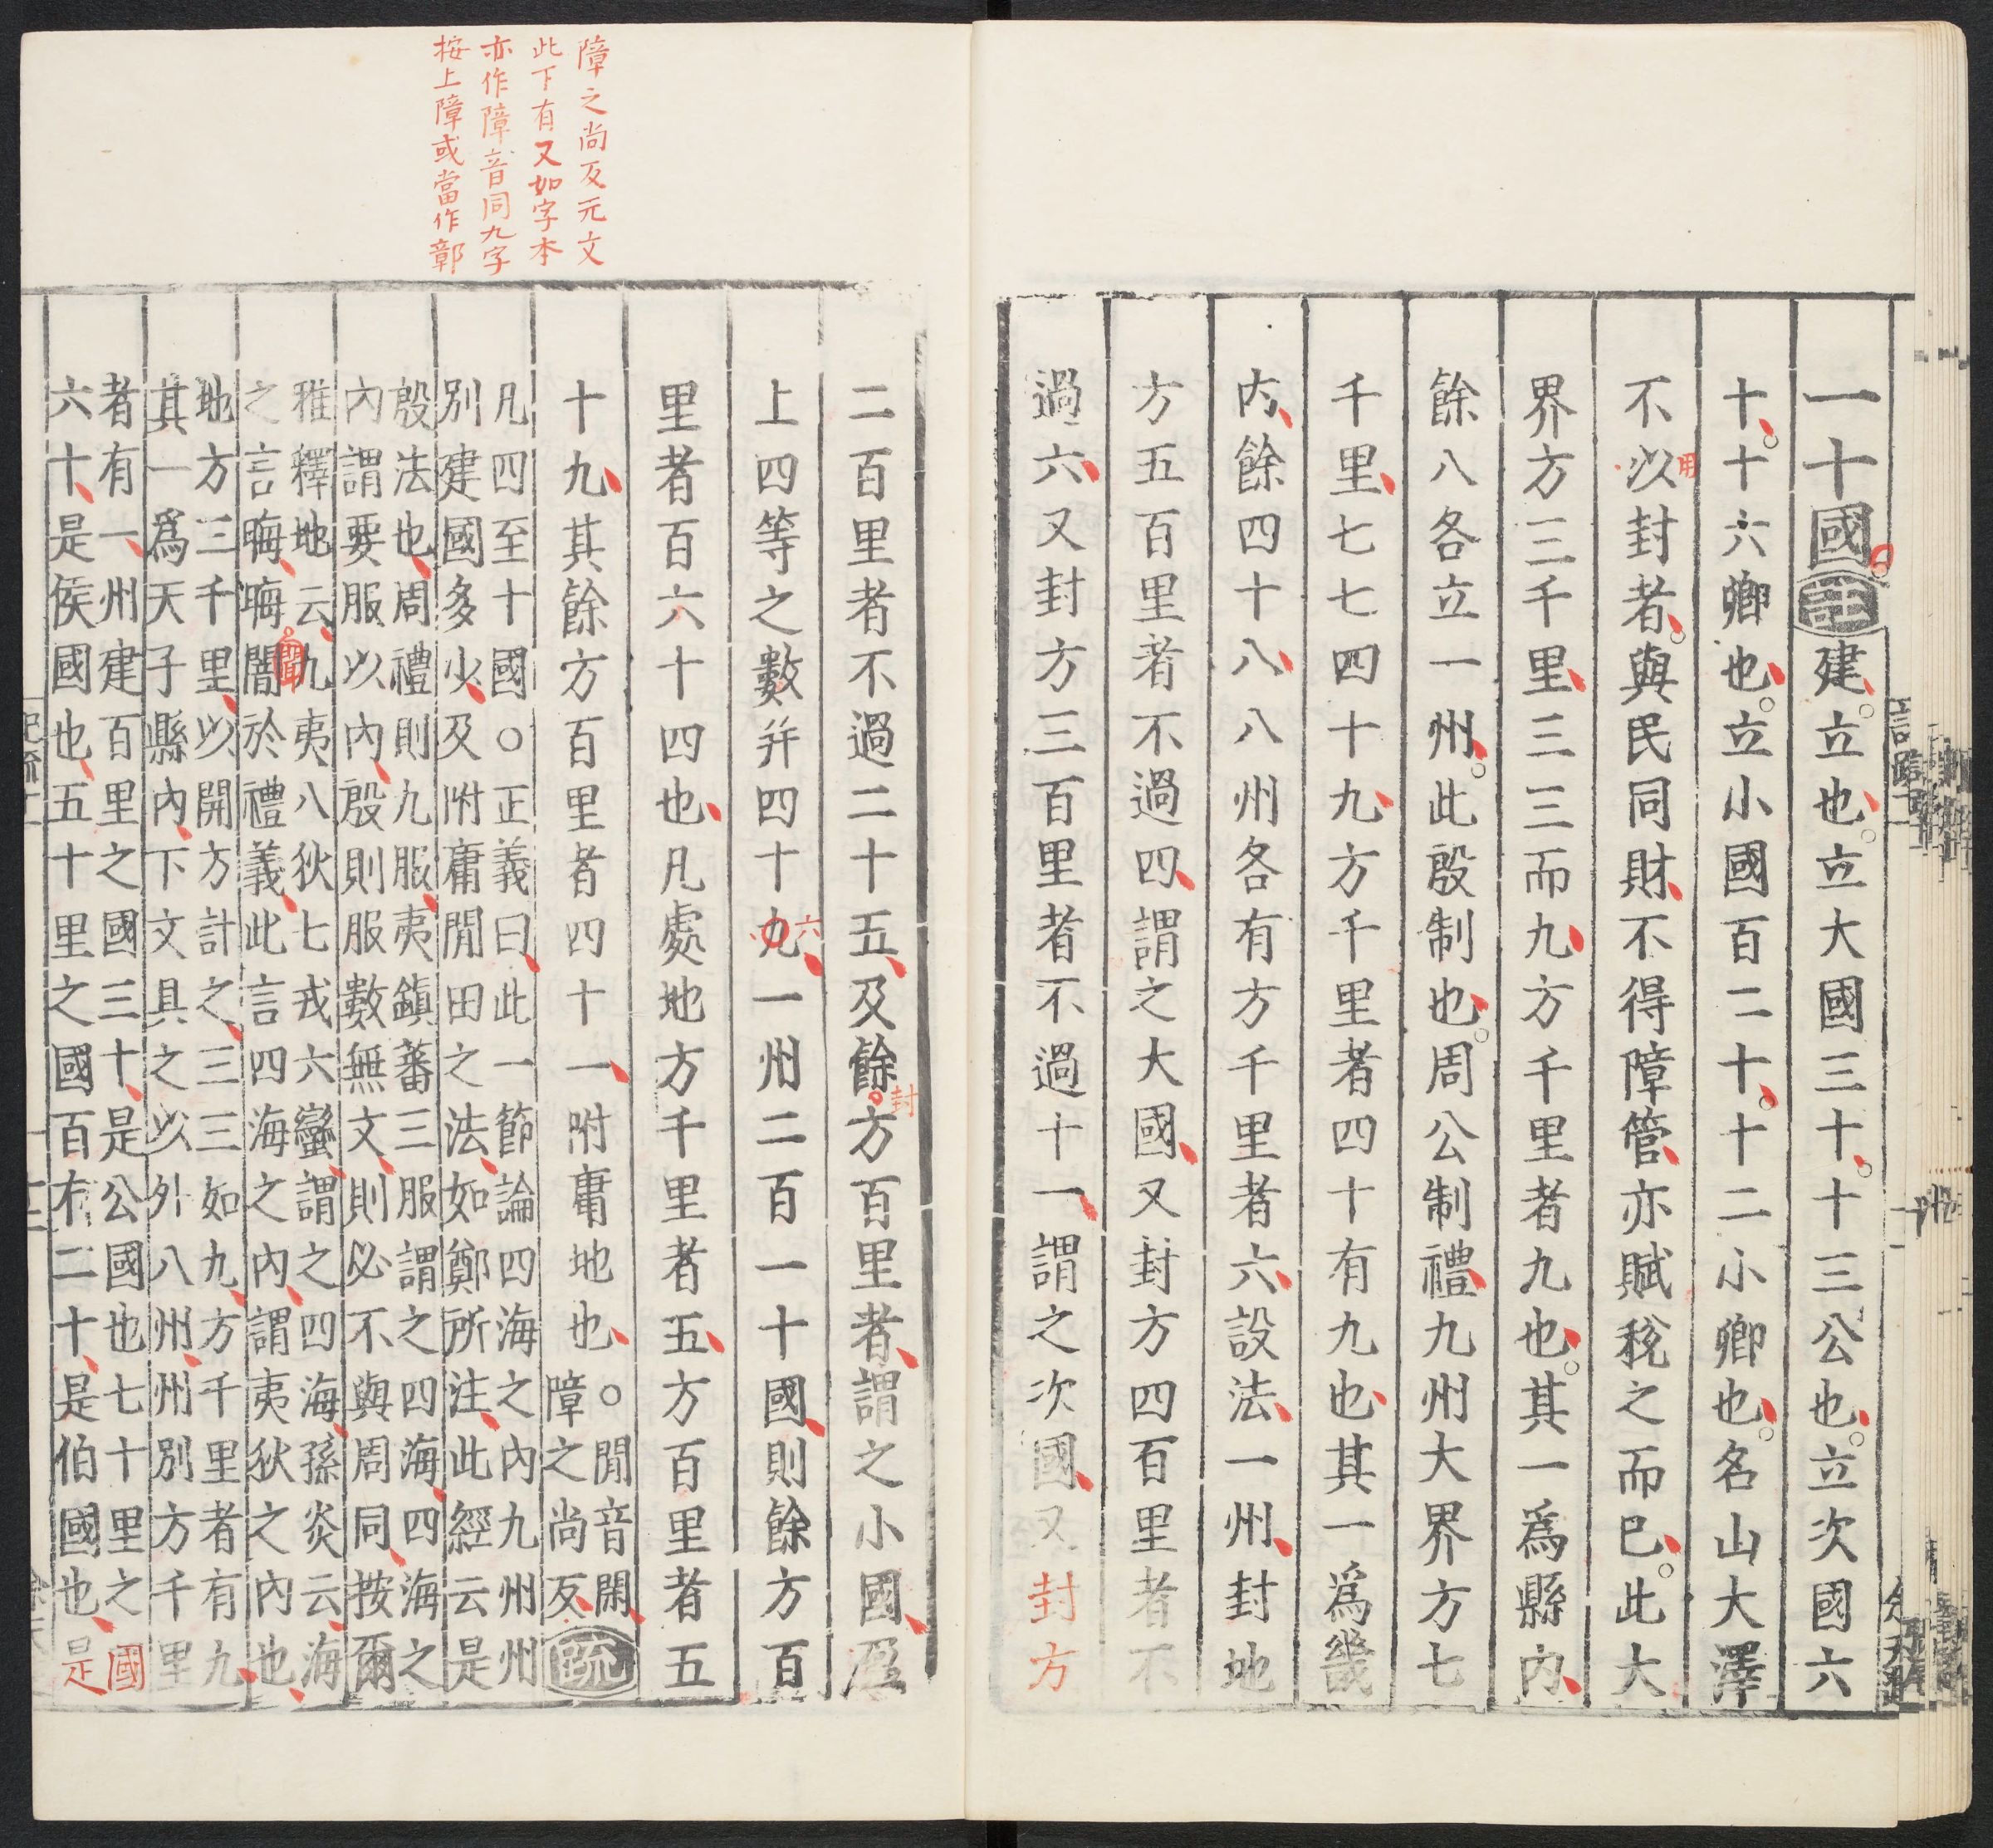 一十國註建立也立大國三十十三公也立次國六
十十六卿也立小國百二十十二小卿也名山大澤
不以封者與民同財不得障管亦賦稅之而已此大
用
界方三千里三三而九方千里者九也其一爲縣內
餘八各立一州此殷制也周公制禮九州大界方七
千里七七四十九方千里者四十有九也其一爲畿
內餘四十八八州各有方千里者六設法一州封地
方五百里者不過四謂之大國又封方四百里者不
過六又封方三百里者不過十一謂之次國又封方
障之尚反元文
此下有又如字本
亦作障音同九字
按上障或當作鄣
二百里者不過二十五及餘方百里者謂之小國盈
封
上四等之數并四十九一州二百一十國則餘方百
六
里者百六十四也凡處地方千里者五方百里者五
十九其餘方百里者四十一附庸地也○閒音閑
障之尚反疏
凡四至十國○正義曰此一節論四海之內九州州
別建國多少及附庸閒田之法如鄭所注此經云是
殷法也周禮則九服夷鎮蕃三服謂之四海四海之
內謂要服以內殷則服數無文則必不與周同按爾
雅釋地云九夷八狄七戎六蠻謂之四海孫炎云海
之言晦晦闇於禮義此言四海之內謂夷狄之內也
地方三千里以開方計之三三如九方千里者有九
其一爲天子縣內下文具之以外八州州別方千里
者有一州建百里之國三十是公國也七十里之國
六十是侯國也五十里之國百有二十是伯國也是